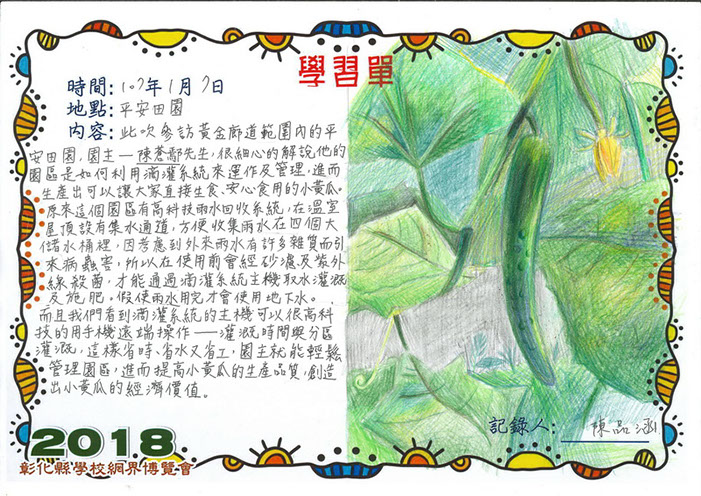 學習單
時間:107年1月7日
地點:平安田園
內容:此次參訪黃金廊道範圍內的平
安田園,園主—陳蒼鄢先生,很細心的解說他的
園區是如何利用滴灌系統來運作及管理,進而
生產出可以讓大家直接生食、安心食用的小黃瓜。
原來這個園區有高科技雨水回收系統,在溫室
屋頂設有集水通道,方便收集雨水在四個大
儲水桶裡,因考慮到外來雨水有許多雜質而引
來病蟲害,所以在使用前會經砂濾及紫外
線殺菌,才能通過滴灌系統主機取水灌溉
及施肥。假使雨水用完才會使用地下水。
而且我們看到滴灌系統的主機可以很高科
技的用手機遠端操作——灌溉時間與分區
灌溉,這樣省時、省水又省工,園主就能輕鬆
管理園區,進而提高小黃瓜的生產品質,創造
出小黃瓜的經濟價值。
記錄人:陳品涵
2018
彰化縣學校網界博覽會